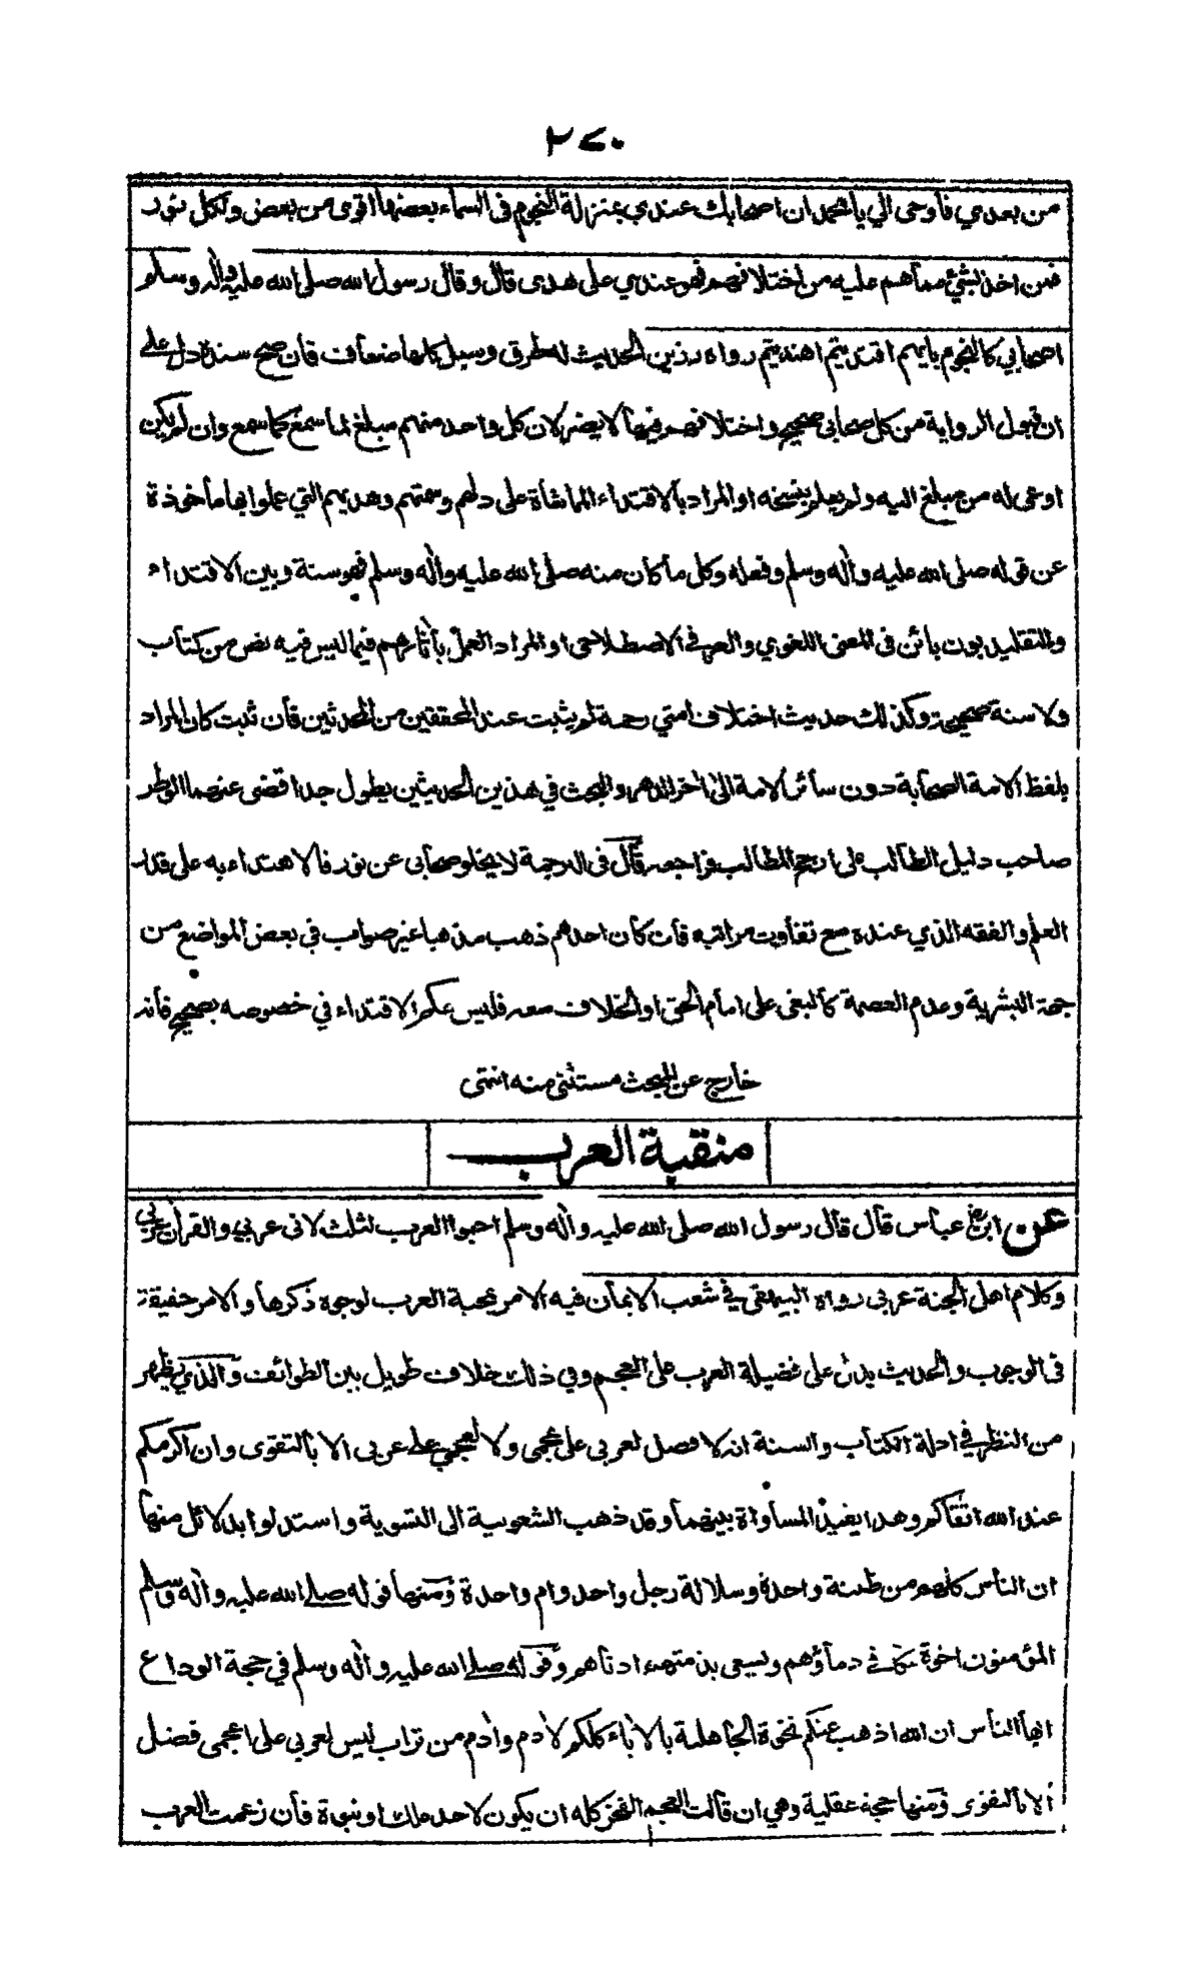 ٢٧٠
من بعدي فأوحى الي يا محمد ان اصحابك عندي بمنزلة النجوم في السماء بعضها اقوى من بعض ولكل نور
فمن اخذ بشيء مما هم عليه من اختلافهم فهو عندي على هدى قال وقال رسول الله صلى الله عليه واله وسلم
اصحابي كالنجوم بايهم اقتديتم اهتديتم رواه رزين الحديث له طرق وسبل كلها ضعاف فأن صح سنده دل على
ان قبول الرواية من كل صحابي صحيح واختلافهم فيها لا يضر لان كل واحد منهم مبلغ لما سمع كما سمع وان لم يكن
اوعى له من مبلغ اليه ولم يعلم بنسخه او المراد بألاقتداء المماشاة على دلهم وسمتهم وهديهم التي عملوا بها مأخوذة
عن قوله صلى الله عليه وأله وسلم وفعله وكل ما كان منه صلى الله عليه وأله وسلم فهو سنة وبين الاقتداء
والتقليد بون بائن في المعنى اللغوي والعرفي الاصطلاحي او المراد العمل بأثارهم فيما ليس فيه نص من كتأب
ولا سنة صحيحة وكذلك حديث اختلاف امتي رحمة لم يثبت عند المحققين من المحدثين فأن ثبت كان المراد
بلفظ الامة الصحابة دون سائر الامة الى أخر الدهر والبحث في هذين الحديثين يطول جدا قضى عنهما الوطر
صاحب دليل الطألب على ارجح المطألب فراجعه قال في الترجمة لا يخلو صحأبي عن نور فالاهتداء به على قدر
العلم والفقه الذي عنده مع تفأوت مراتبه فأن كأن احدهم ذهب مذهبا غير صواب في بعض المواضع من
جهة البشرية وعدم العصمة كألبغي على امأم الحق او الخلاف معه فليس حكم الاقتداء في خصوصه بصحيح فأنه
خارج عن المبحث مستثنى منه انتهى
منقبة العرب
عن ابن عباس قأل قأل رسول الله صلى الله عليه وأله وسلم احبوا العرب لثلث لانى عربي والقرأن عربي
وكلام اهل الجنة عربي رواه البيهقي في شعب الايمأن فيه الامر بمحبة العرب لوجوه ذكرها والامر حقيقة
في الوجوب والحديث يدل على فضيلة العرب على العجم وفي ذلك خلاف طويل بين الطوائف والذي يظهر
من النظر في ادلة الكتأب والسنة انه لا فضل لعربي على عجمي ولا لعجمي على عربي الا بألتقوى وان اكرمكم
عند الله اتقأكم وهذا يفيد المسأواة بينهمأ وقد ذهب الشعوبية الى التسوية واستدلوا بدلائل منهأ
ان النأس كلهم من طينة واحدة وسلالة رجل واحد وام واحدة ومنهأ قوله صلى الله عليه وأله وسلم
المؤمنون اخوة تتكافى دمأؤهم ويسعى بذمتهم ادنأهم وقوله صلى الله عليه وأله وسلم في حجة الوداع
ايهأ النأس ان الله اذهب عنكم نخوة الجأهلية بالأباء كلكم لأدم وأدم من تراب ليس لعربي على اعجمى فضل
الا بألتقوى ومنهأ حجة عقلية وهي ان قألت العجم الفخر كله ان يكون لاحد ملك او نبوة فأن زعمت العرب